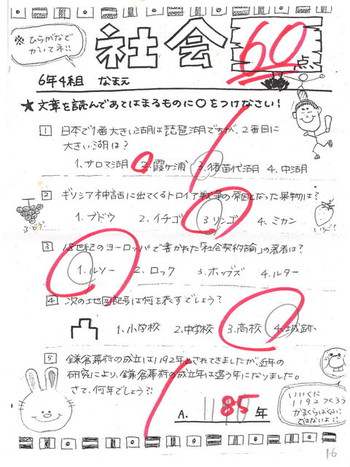 ※ひらがなで
かいてネ!!
社会
60点
6年4組 なまえ
★文章を読んであてはまるものに○をつけなさい!
1 日本で1番大きい湖は琵琶湖ですが、2番目に
大きい湖は?
1.サロマ湖 2.霞ヶ浦 3.猪苗代湖 4.中湖
2 ギリシア神話に出てくるトロイア戦争の原因となった果物は?
1.ブドウ 2.イチゴ 3.リンゴ 4.ミカン
3 18世紀のヨーロッパで書かれた「社会契約論」の著者は?
1.ルソー 2.ロック 3.ホッブズ 4.ルター
4 次の地図記号は何を表すでしょう?
1.小学校 2.中学校 3.高校 4.城跡
5 鎌倉幕府の成立は1192年とされてきましたが、近年の
研究により、鎌倉幕府の成立年は違う年になりました。
さて、何年でしょう?!
A. 1185年
いいくに
1192つくろう
かまくらばくふ
ではないよ!!
16